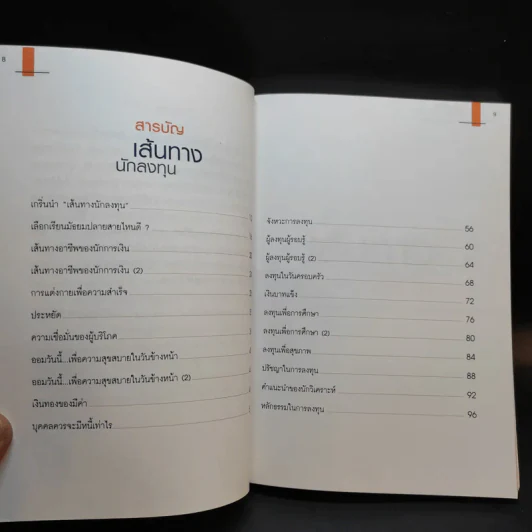 8
สารบัญ
เส้นทาง
นักลงทุน
เกริ่นนำ "เส้นทางนักลงทุน"
เลือกเรียนมัธยมปลายสายไหนดี ?
เส้นทางอาชีพของนักการเงิน
เส้นทางอาชีพของนักการเงิน (2)
การแต่งกายเพื่อความสำเร็จ
ประหยัด
ความเชื่อมั่นของผู้บริโภค
ออมวันนี้...เพื่อความสุขสบายในวันข้างหน้า
ออมวันนี้...เพื่อความสุขสบายในวันข้างหน้า (2)
เงินทองของมีค่า
บุคคลควรจะมีหนี้เท่าไร
9
จังหวะการลงทุน 56
ผู้ลงทุนผู้รอบรู้ 60
ผู้ลงทุนผู้รอบรู้ (2) 64
ลงทุนในวันครอบครัว 68
เงินบาทแข็ง 72
ลงทุนเพื่อการศึกษา 76
ลงทุนเพื่อการศึกษา (2) 80
ลงทุนเพื่อสุขภาพ 84
ปรัชญาในการลงทุน 88
คำแนะนำของนักวิเคราะห์ 92
หลักธรรมในการลงทุน 96